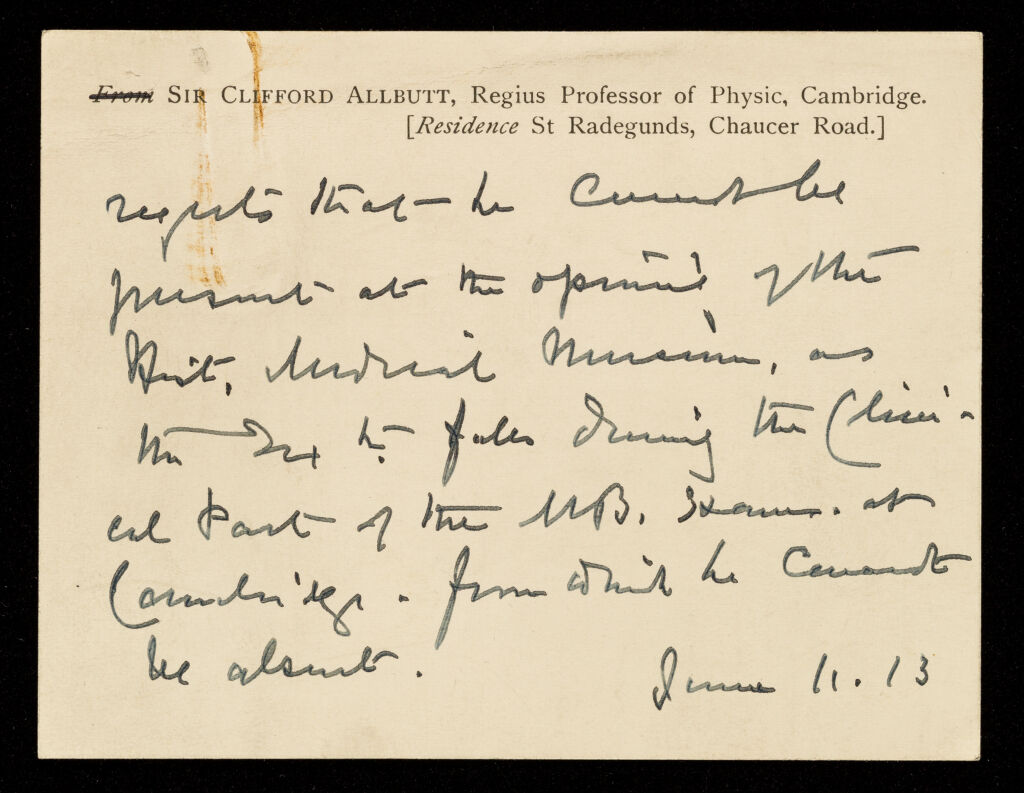 From SIR CLIFFORD ALLBUTT, Regius Professor of Physic, Cambridge.
[Residence St Radegunds, Chaucer Road.]
regrets that he cannot be
present at the opening of the
Hist. Medical Museum, as
the falls during the Clini-
cal Part of the M.B. Exam. at
Cambridge - from which he cannot
be absent.
June 11. 13